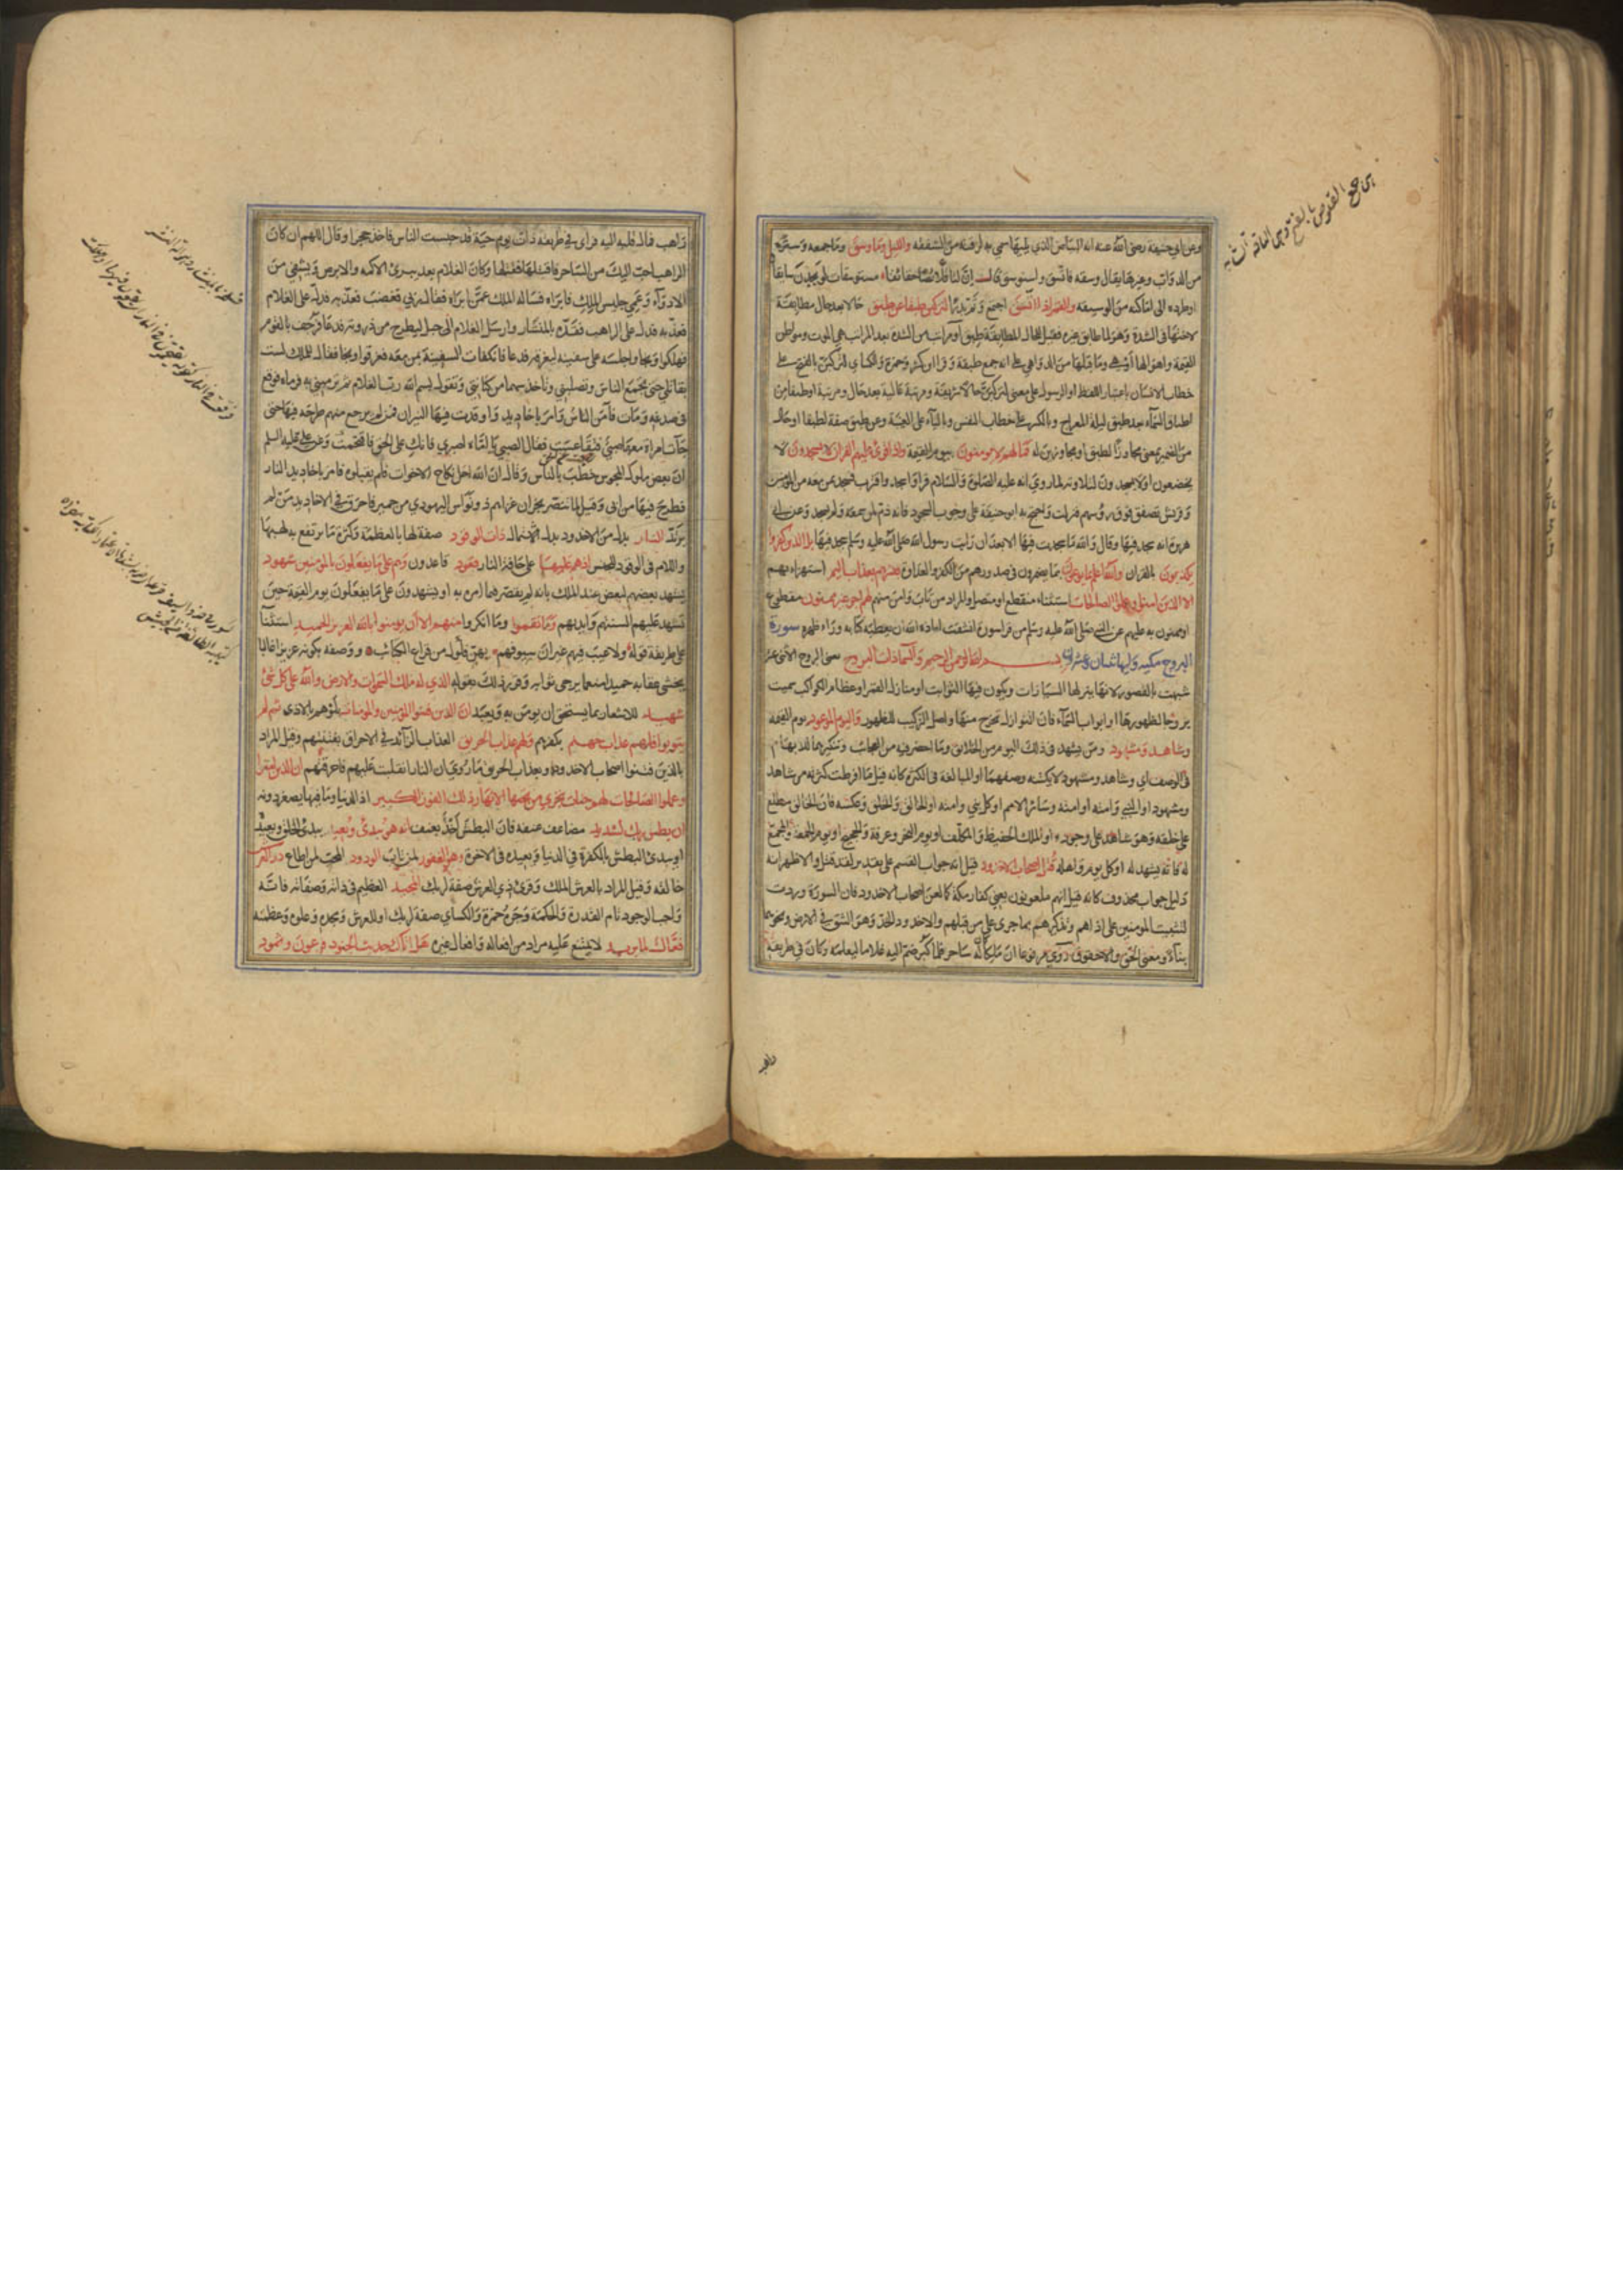 وعن ابي حنيفة رضى الله عنه انه البياض الذي يليها سمي به لرقته من الشفقة والليل وما وسق وما جمعه وستره
من الدواب وغيرها يقال وسقه فاتسق واستوسق قال ان لنا قلائصا حقائقا مستوسقات لو يجدن سائقا
او طرده الى اماكنه من الوسيقة والقمر اذا اتسق اجتمع وتم بدرا لتركبن طبقا عن طبق حالا بعد حال مطابقة
لاختها في الشدة وهو لما طابق غيره فقيل للحال المطابقة طبق او مراتب من الشدة بعد المراتب هي الموت ومواطن
القيمة واهوالها او هي وما قبلها من الدواهي على انه جمع طبقة وقرا ابن كثير وحمزة والكسائي لتركبن بالفتح على
خطاب الانسان باعتبار اللفظ او الرسول على معنى لتركبن حالا شريفة ومرتبة عالية بعد حال ومرتبة او طبقا من
اطباق السماء بعد طبق ليلة المعراج وبالكسر على خطاب النفس وبالياء على الغيبة وعن طبق صفة لطبقا او حال
من الضمير بمعنى مجاوزا لطبق او مجاوزين له فما لهم لا يومنون بيوم القيمة واذا قرئ عليهم القران لا يسجدون لا
يخضعون او لا يسجدون لتلاوته لما روي انه عليه الصلوة والسلام قرا واسجد واقترب فسجد بمن معه من المؤمنين
وقريش تصفق فوق رؤسهم فنزلت واحتج به ابو حنيفة على وجوب السجود فانه ذم لمن سمعه ولم يسجد وعن ابي
هريرة انه سجد فيها وقال والله ما سجدت فيها الا بعد ان رايت رسول الله صلى الله عليه وسلم يسجد فيها بل الذين كفروا
يكذبون بالقران والله اعلم بما يوعون بما يضمرون في صدورهم من الكفر والعداوة فبشرهم بعذاب اليم استهزاء بهم
الا الذين امنوا وعملوا الصالحات استثناء منقطع او متصل والمراد من تاب وامن منهم لهم اجر غير ممنون مقطوع
او ممنون به عليهم عن النبي صلى الله عليه وسلم من قرا سورة انشقت اعاذه الله ان يعطيه كتابه وراء ظهره سورة
البروج مكية وايها ثنتان وعشرون بسم الله الرحمن الرحيم والسماء ذات البروج يعني البروج الاثني عشر
شبهت بالقصور لانها ينزلها السيارات ويكون فيها الثوابت او منازل القمر او عظام الكواكب سميت
بروجا لظهورها او ابواب السماء فان النوازل تخرج منها واصل التركيب للظهور واليوم الموعود يوم القيمة
وشاهد ومشهود ومن يشهد في ذلك اليوم من الخلائق وما احضر فيه من العجائب وتنكيرهما للابهام
في الوصف اي وشاهد ومشهود لا يكتنه وصفهما او المبالغة في الكثرة كانه قيل ما افرطت كثرته من شاهد
ومشهود او النبي وامته او امته وسائر الامم او كل نبي وامته او الخالق والخلق وعكسه فان الخالق مطلع
على خلقه وهو شاهد على وجوده او الملك الحفيظ والمكلف او يوم النحر وعرفة والحجيج او يوم الجمعة والمجمع
له فانه يشهد له او كل يوم واهله قتل اصحاب الاخدود قيل انه جواب القسم على تقدير لقد قتل والاظهر انه
دليل جواب محذوف كانه قيل انهم ملعونون يعني كفار مكة كما لعن اصحاب الاخدود فان السورة وردت
لتثبيت المؤمنين على اذاهم وتذكيرهم بما جرى على من قبلهم والاخدود الخد وهو الشق في الارض ونحوهما
بناء ومعنى الخق والاخقوق روي مرفوعا ان ملكا كان له ساحر فلما كبر ضم اليه غلاما ليعلمه وكان في طريقه
راهب
راهب فمال قلبه اليه فراى في طريقه ذات يوم حية قد حبست الناس فاخذ حجرا وقال اللهم ان كان
الراهب احب اليك من الساحر فاقتلها فقتلها وكان الغلام بعد يبرئ الاكمه والابرص ويشفي من
الادواء وعمي جليس الملك فابراه فساله الملك عمن ابراه فقال ربي فغضب فعذبه فدله على الغلام
فعذبه فدل على الراهب فقده بالمنشار وارسل الغلام الى جبل ليطرح من ذروته فدعا فرجف بالقوم
فهلكوا ونجا واجلسه على سفينة ليغرق فدعا فانكفات السفينة بمن معه فغرقوا ونجا فقال للملك لست
بقاتلي حتى تجمع الناس وتصلبني وتاخذ سهما من كنانتي وتقول بسم الله رب الغلام ثم ترميني به فرماه فوقع
في صدغه ومات فآمن الناس وامر باخاديد واوقدت فيها النيران فمن لم يرجع منهم طرحه فيها حتى
جآت امراة معها صبي فتقاعست فقال الصبي يا اماه اصبري فانك على الحق فاقتحمت وعن علي عليه السلم
ان بعض ملوك المجوس خطب بالناس وقال ان الله احل نكاح الاخوات فلم يقبلوه فامر باخاديد النار
فطرح فيها من ابى وقيل لما تنصر نجران غزاهم ذو نواس اليهودي من حمير فاحرق في الاخاديد من لم
يرتد النار بدل من الاخدود بدل الاشتمال ذات الوقود صفة لها بالعظمة وكثرة ما يرتفع به لهبها
واللام في الوقود للجنس اذ هم عليها على حافة النار قعود قاعدون وهم على ما يفعلون بالمؤمنين شهود
يشهد بعضهم لبعض عند الملك بانه لم يقصر فيما امر به او يشهدون على ما يفعلون يوم القيمة حين
تشهد عليهم السنتهم وايديهم وما نقموا وما انكروا منهم الا ان يومنوا بالله العزيز الحميد استثنآ
على طريقة قوله ولا عيب فيهم غير ان سيوفهم بهن فلول من قراع الكتائب ووصفه بكونه عزيزا غالبا
يخشى عقابه حميدا منعما يرجى ثوابه وقرر ذلك بقوله الذي له ملك السموات والارض والله على كل شئ
شهيد للاشعار بما يستحق ان يومن به ويعبد ان الذين فتنوا المؤمنين والمومنات بلوهم بالاذى ثم لم
يتوبوا فلهم عذاب جهنم بكفرهم ولهم عذاب الحريق العذاب الزآئد في الاحراق بفتنتهم وقيل المراد
بالذين فتنوا اصحاب الاخدود وبعذاب الحريق ما روي ان النار انقلبت عليهم فاحرقتهم ان الذين امنوا
وعملوا الصالحات لهم جنات تجري من تحتها الانهار ذلك الفوز الكبير اذ الدنيا وما فيها يصغر دونه
ان بطش ربك لشديد مضاعف عنفه فان البطش اخذ بعنف انه هو يبدئ ويعيد يبدئ الخلق ويعيده
او يبدئ البطش بالكفرة في الدنيا ويعيده في الاخرة وهو الغفور لمن تاب الودود المحب لمن اطاع ذو العرش
خالقه وقيل المراد بالعرش الملك وقرئ ذي العرش صفة لربك المجيد العظيم في ذاته وصفاته فانه
واجب الوجود تام القدرة والحكمة وجره حمزة والكسائي صفة لربك او للعرش ومجده علوه وعظمته
فعال لما يريد لا يمتنع عليه مراد من افعاله وافعال غيره هل اتاك حديث الجنود فرعون وثمود